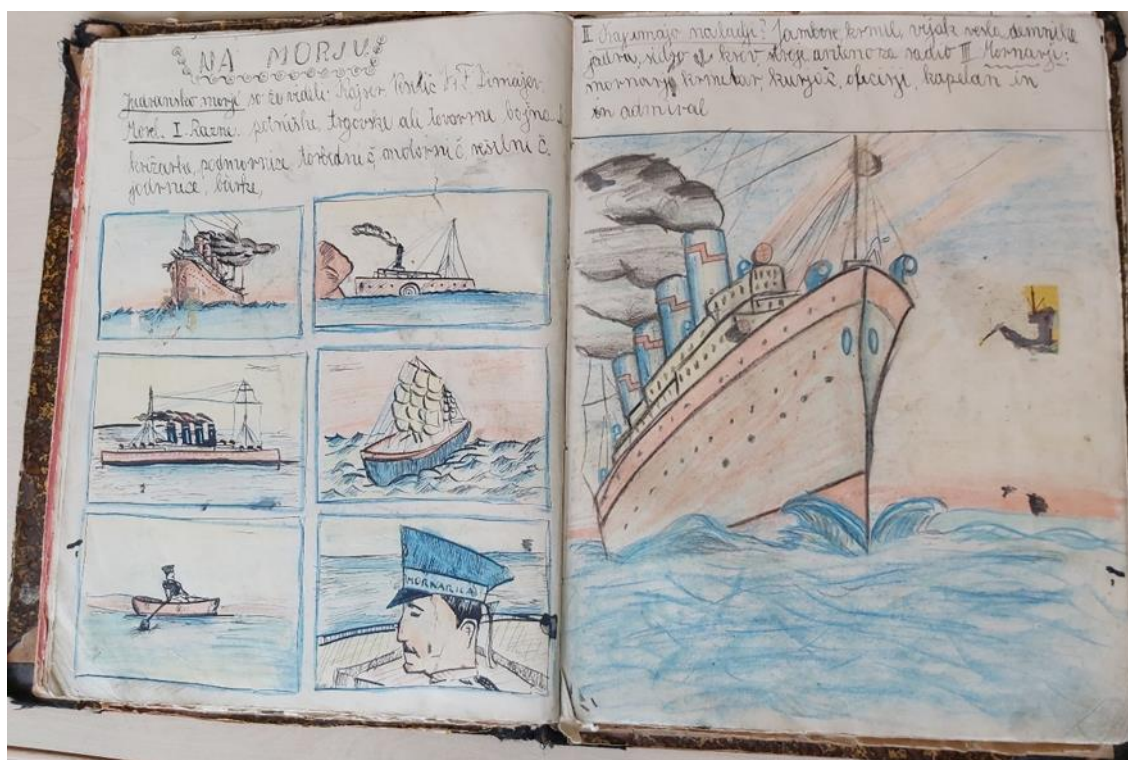 NA MORJU
Jadransko morje so že videli: Kajser, Krulic F. Dimajer
I. Razne. potniške, trgovske ali tovorne bojna
križarke, podmornice, torpedni č, motorni č rešilni č.
jadrnice, barke,
MORNARICA
II Kaj imajo na ladji? Jambore krmil, vijak vesla dimnike
jadra, sidro krov stroji anteno za radio III Mornarji:
mornarji krmar, kurjač, oficirji, kapetan in
in admiral